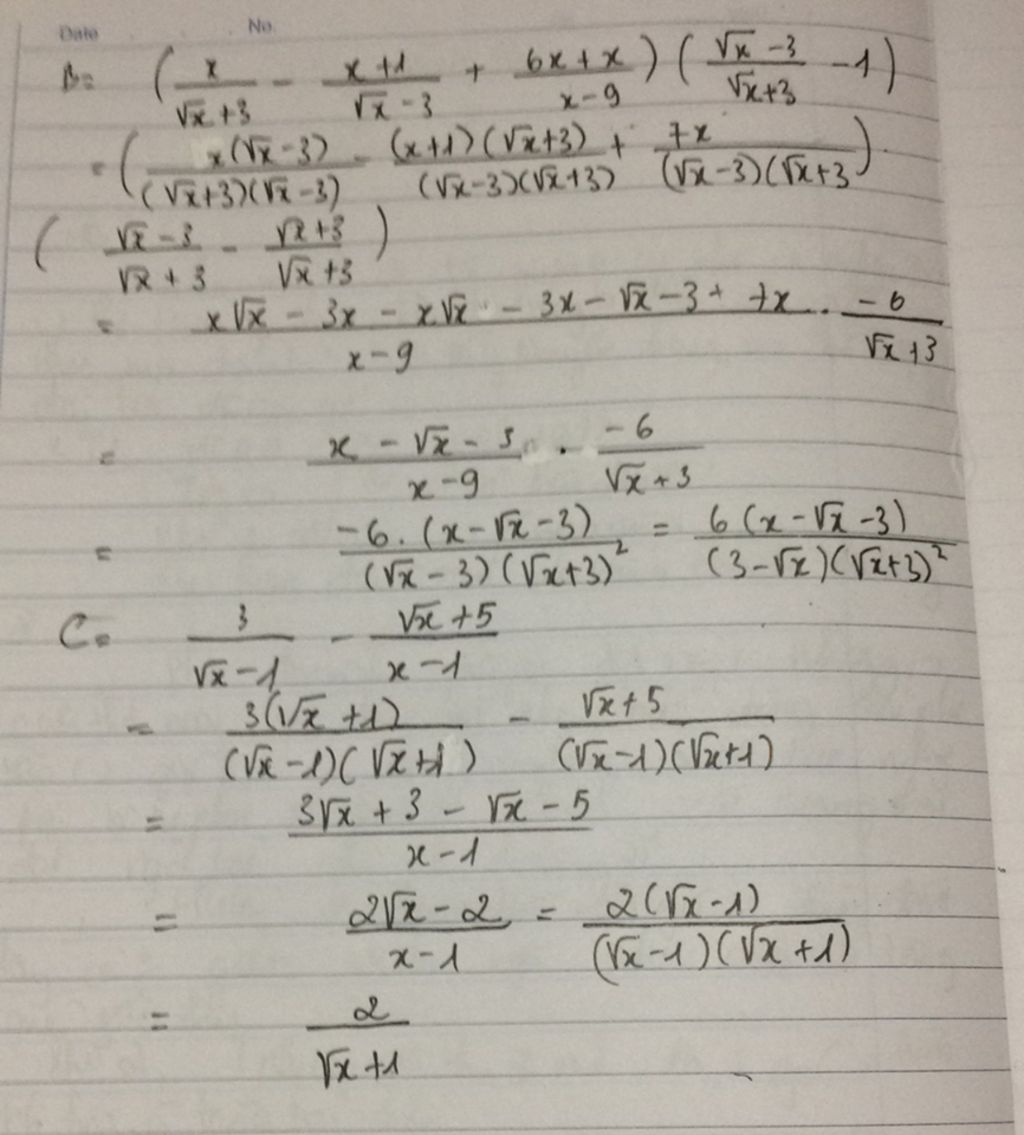 Date No.
B = (x/(√x+3) - (x+1)/(√x-3) + (6x+x)/(x-9)) ((√x-3)/(√x+3) - 1)
= (x(√x-3)/((√x+3)(√x-3)) - (x+1)(√x+3)/((√x-3)(√x+3)) + 7x/((√x-3)(√x+3))
((√x-3)/(√x+3) - (√x+3)/(√x+3))
= (x√x - 3x - x√x - 3x - √x - 3 + 7x)/(x-9) . -6/(√x+3)
= (x - √x - 3)/(x-9) . -6/(√x+3)
= -6.(x-√x-3)/((√x-3)(√x+3)²) = 6(x-√x-3)/((3-√x)(√x+3)²)
C = 3/(√x-1) - (√x+5)/(x-1)
= 3(√x+1)/((√x-1)(√x+1)) - (√x+5)/((√x-1)(√x+1))
= (3√x + 3 - √x - 5)/(x-1)
= (2√x-2)/(x-1) = 2(√x-1)/((√x-1)(√x+1))
= 2/(√x+1)